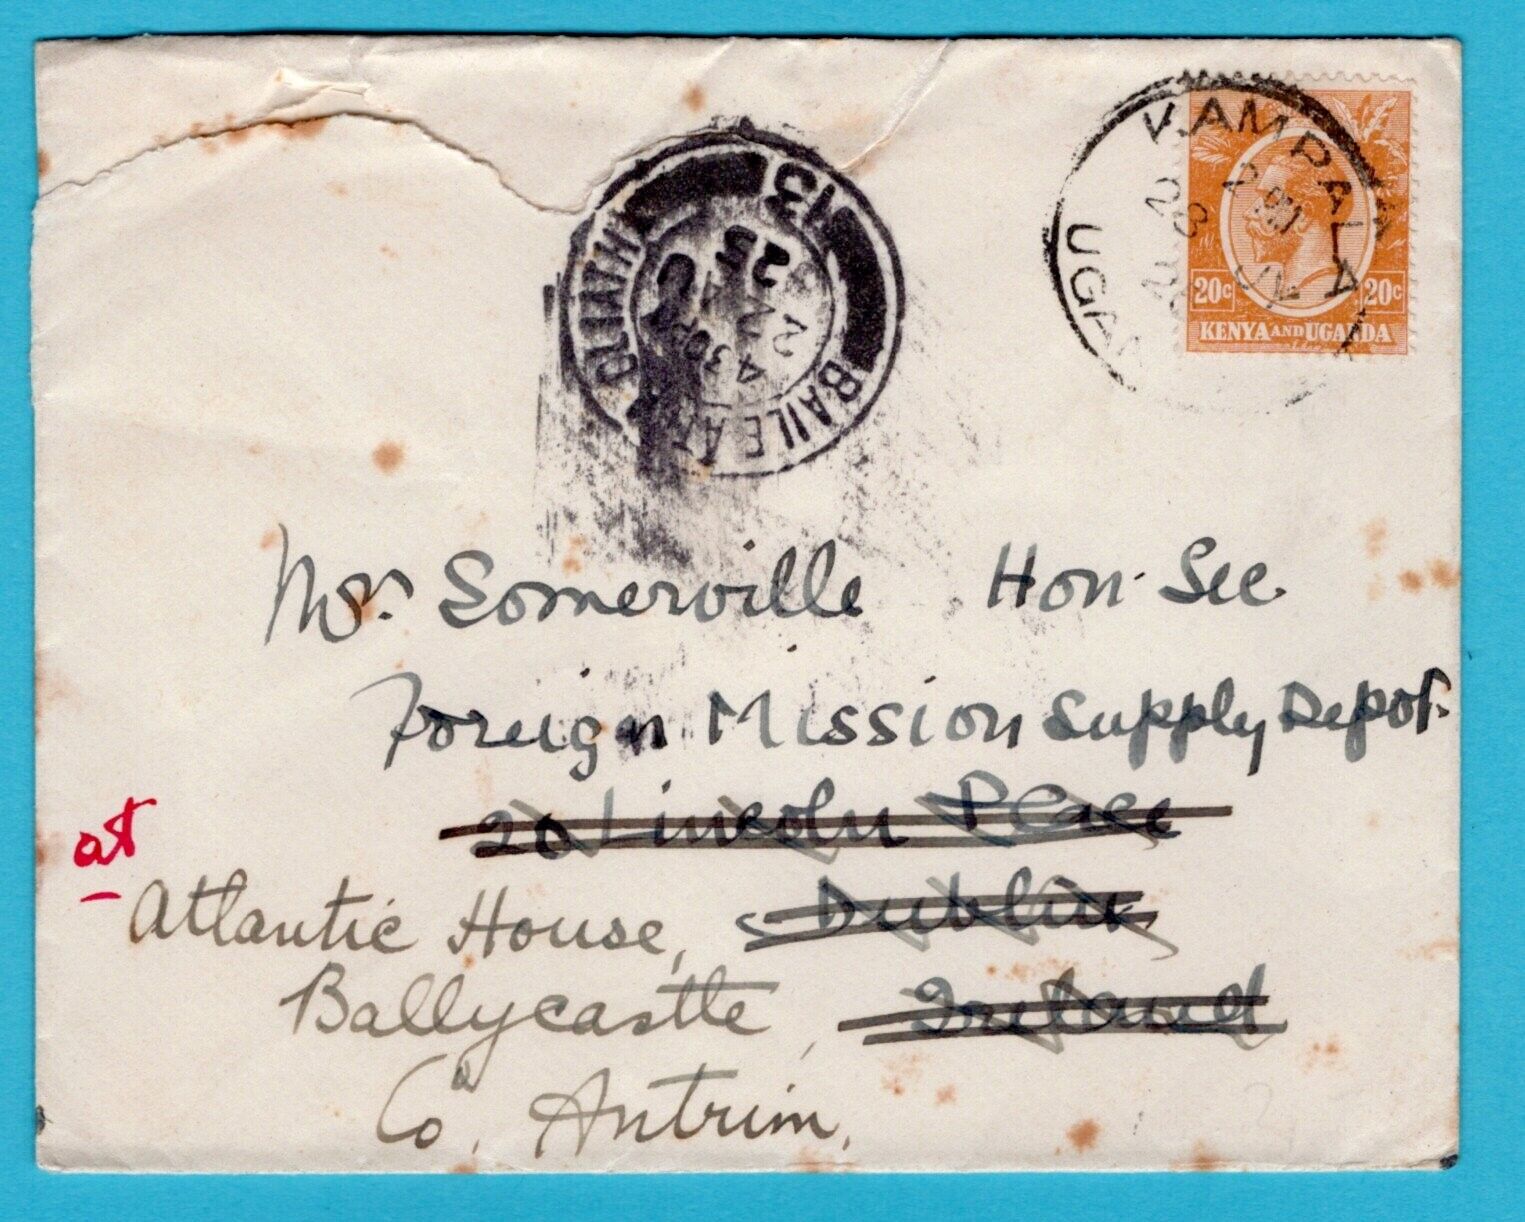 KAMPALA
UGAN
20c 20c
KENYA AND UGANDA
BAILE ÁT CLIATH
13
430PM
Mr. Somerville Hon. Sec.
Foreign Mission Supply Depot.
20 Lincoln Place
at
Atlantic House, Dublin
Ballycastle, Ireland
Co. Antrim.